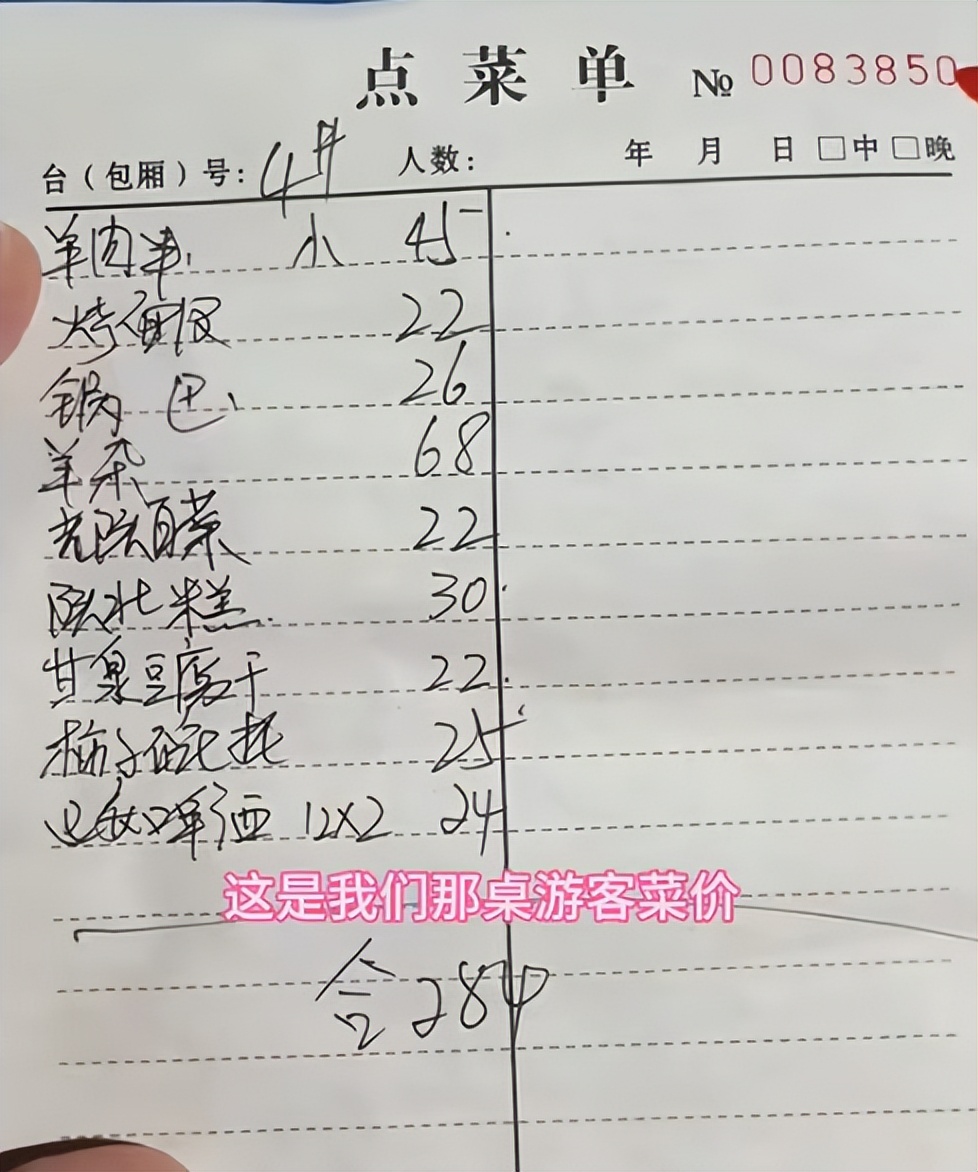 点菜单 № 0083850
台(包厢)号: 4# 人数: 年 月 日 □中 □晚
羊肉 小 45
烤面皮 22
锅巴 26
羊杂 68
老陕白菜 22
陕北米糕 30
甘泉豆腐干 22
柿子 25
啤酒 12X2 24
这是我们那桌游客菜价
合 284